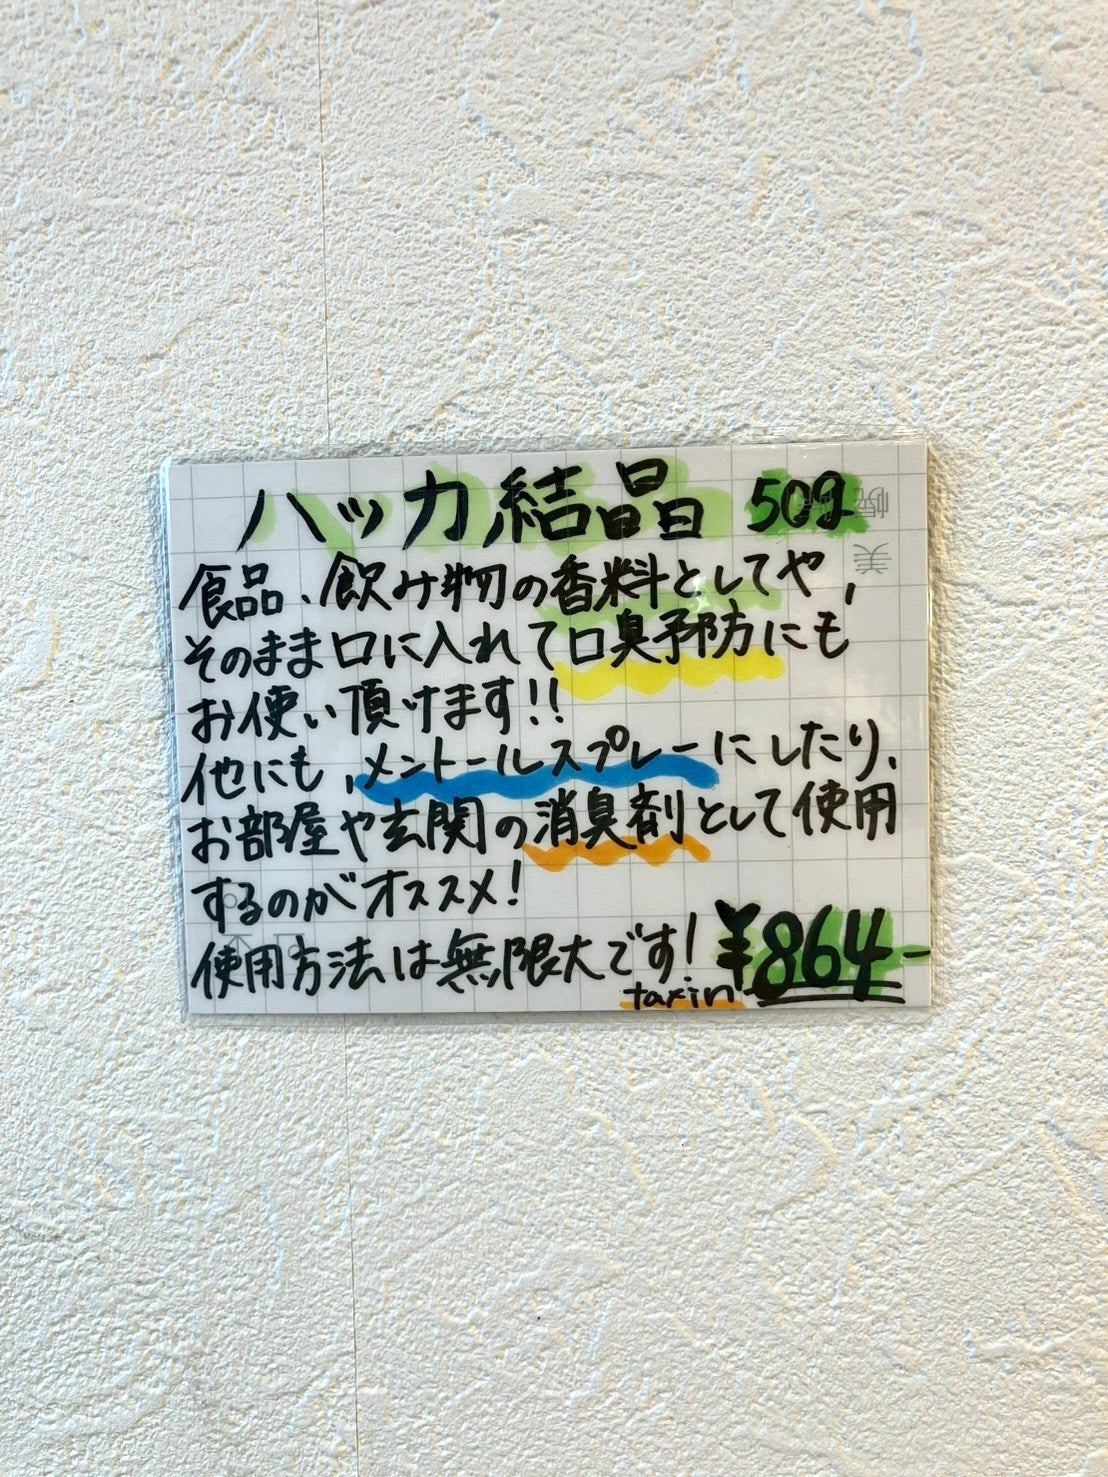 ハッカ結晶 50g
食品、飲み物の香料としてや、
そのまま口に入れて口臭予防にも
お使い頂けます!!
他にも、メントールスプレーにしたり、
お部屋や玄関の消臭剤として使用
するのがオススメ!
使用方法は無限大です! ¥864-
taxin